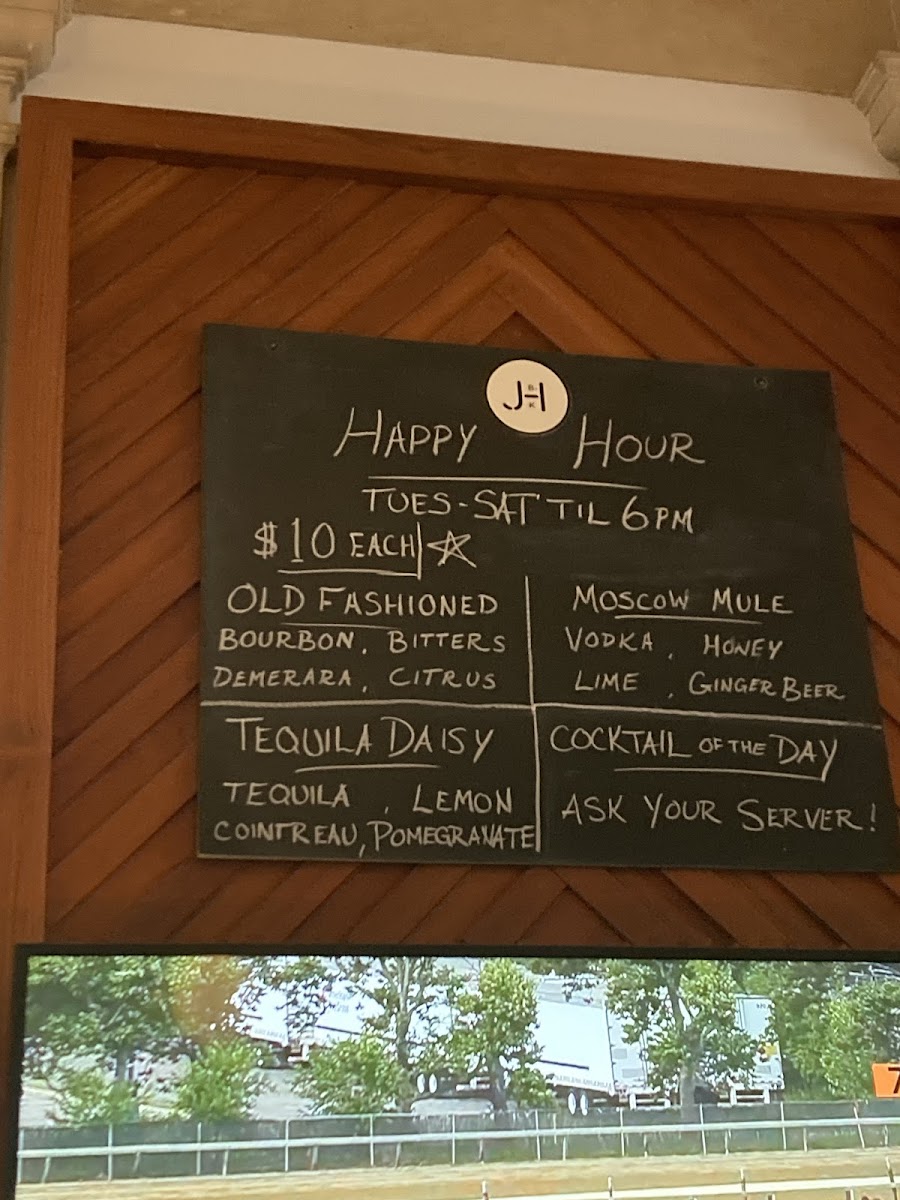 JH
B-
K
HAPPY HOUR
TUES-SAT TIL 6PM
$10 EACH
OLD FASHIONED
BOURBON, BITTERS
DEMERARA, CITRUS
MOSCOW MULE
VODKA, HONEY
LIME, GINGER BEER
TEQUILA DAISY
TEQUILA, LEMON
COINTREAU, POMEGRANATE
COCKTAIL OF THE DAY
ASK YOUR SERVER!
7